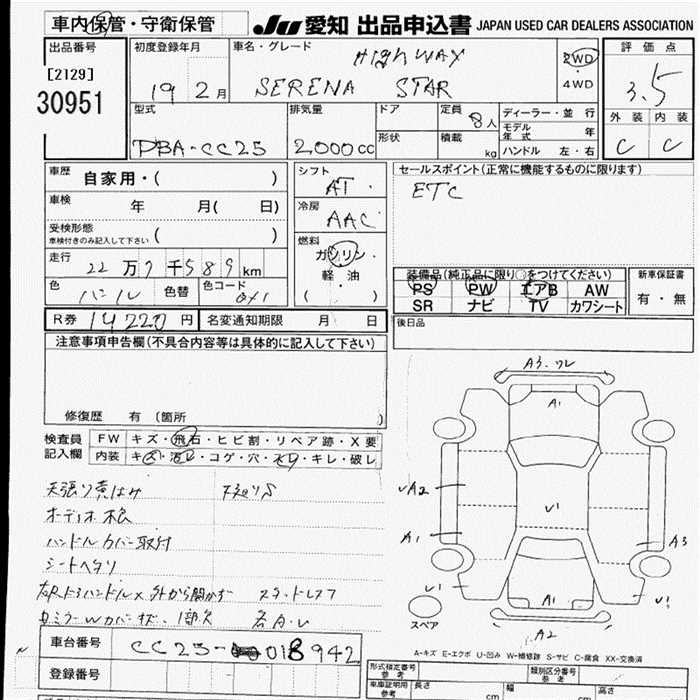 車内保管・守衛保管
JU 愛知 出品申込書 JAPAN USED CAR DEALERS ASSOCIATION
出品番号
[2129]
30951
初度登録年月
19 2月
車名・グレード
HIGHWAY
SERENA STAR
2WD
・
4WD
評価点
3.5
外装 内装
C C
型式
DBA-CC25
排気量
2000cc
ドア
形状
定員 8人
積載 kg
ディーラー・並行
モデル年式 年
ハンドル 左・右
車歴 自家用・( )
車検 年 月( 日)
受検形態
車検付きのみ記入して下さい ( )
走行 22万7千589km
色 パール 色替 色コード QX1
シフト
AT・
冷房
AAC
燃料
ガソリン・
軽・油
( )
セールスポイント(正常に機能するものに限ります)
ETC
装備品(純正品に限り○をつけてください)
PS PW エアB AW
SR ナビ TV カワシート
新車保証書
有・無
R券 14220円 名変通知期限 月 日
後日品
注意事項申告欄(不具合内容等は具体的に記入して下さい)
修復歴 有(箇所 )
検査員
記入欄
FW キズ・飛石・ヒビ割・リペア跡・X要
内装 キズ・汚レ・コゲ・穴・スレ・キレ・破レ
天張り黄ばみ
オーディオ欠
ハンドルカバー取付
シートヘタリ
右Rドアハンドル× 外から開かず スタッドレス
各A・U
A3.ワレ
A1
A2
A1
U1
A3
U1
U1
A1
A2
スペア
A-キズ E-エクボ U-凹み W-補修跡 S-サビ C-腐食 XX-交換済
車台番号 CC25-018942
登録番号
形式指定番号
参考
類別区分番号
参考
車庫証明用
参考
長さ cm
幅 cm
高さ